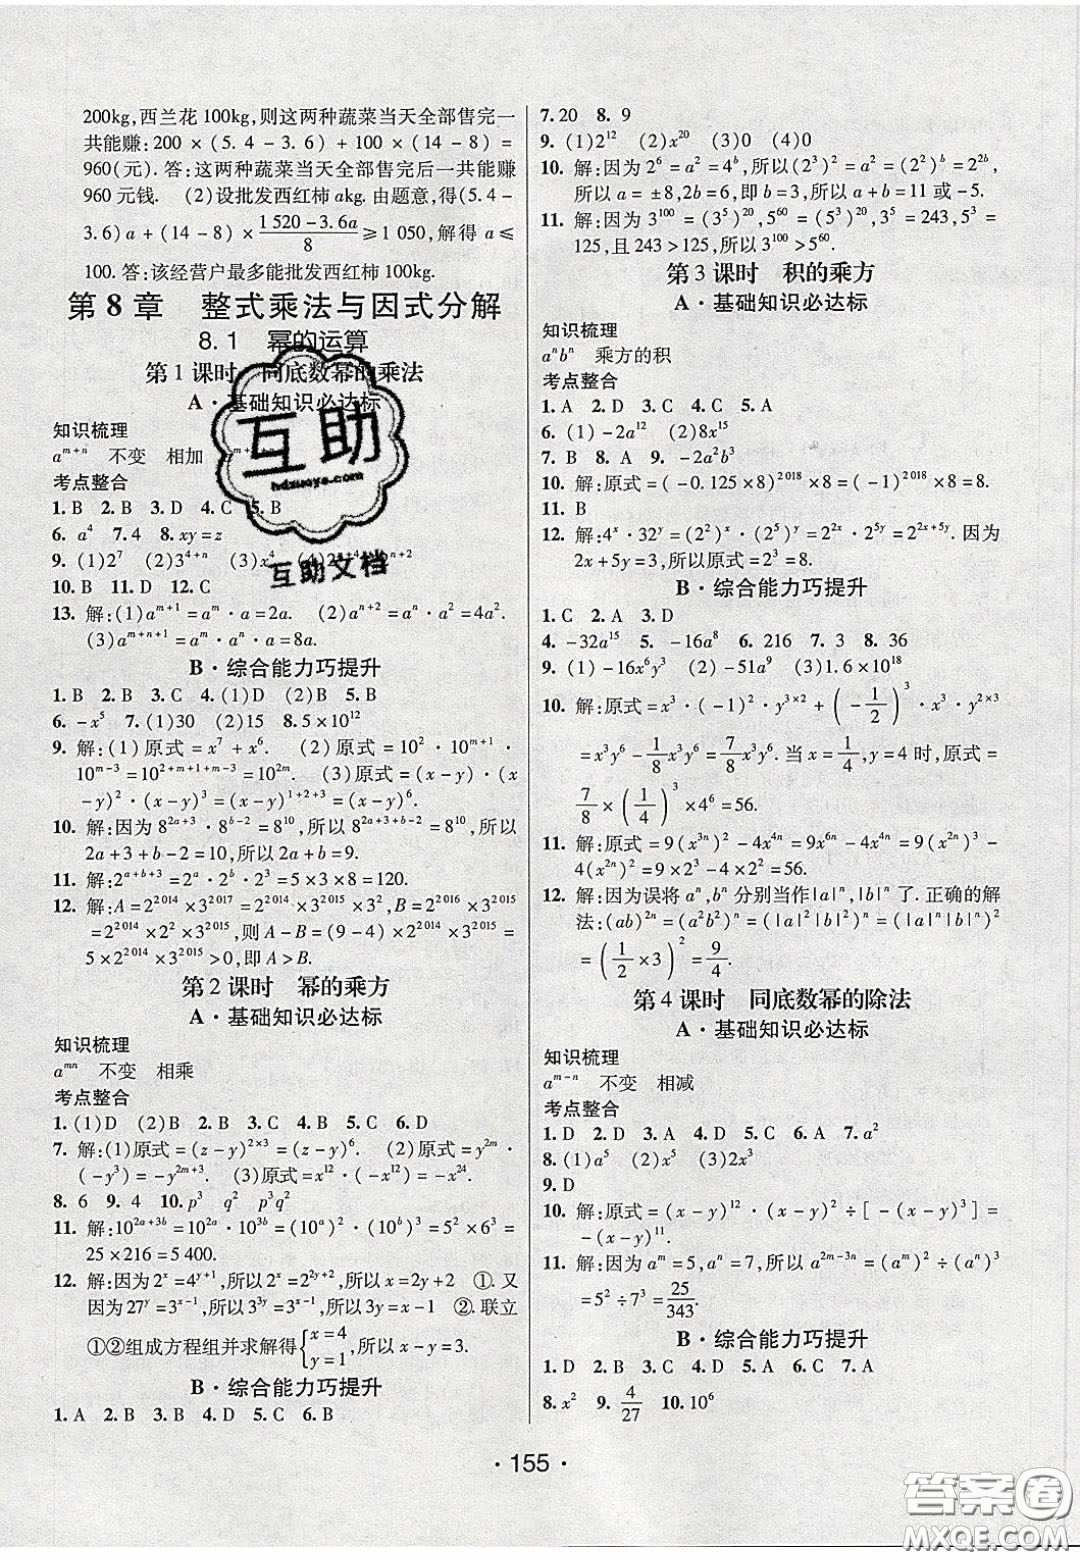 200kg,西兰花100kg,则这两种蔬菜当天全部售完一
共能赚:200×(5.4-3.6)+100×(14-8)=
960(元).答:这两种蔬菜当天全部售完后一共能赚
960元钱. (2)设批发西红柿akg.由题意,得(5.4-
3.6)a+(14-8)×(1520-3.6a)/8≥1050,解得a≤
100.答:该经营户最多能批发西红柿100kg.
第8章 整式乘法与因式分解
8.1 幂的运算
第1课时 同底数幂的乘法
A·基础知识必达标
知识梳理
a^{m+n} 不变 相加
考点整合
1.B 2.B 3.D 4.C 5.B
6.a^4 7.4 8.xy=z
9.(1)2^7 (2)3^{4+n} (3)x^4
10.B 11.D 12.C
13.解:(1)a^{m+1}=a^m·a=2a. (2)a^{n+2}=a^n·a^2=4a^2.
(3)a^{m+n+1}=a^m·a^n·a=8a.
B·综合能力巧提升
1.B 2.B 3.C 4.(1)D (2)B 5.B
6.-x^5 7.(1)30 (2)15 8.5×10^{12}
9.解:(1)原式=x^7+x^6. (2)原式=10^2·10^{m+1}·
10^{m-3}=10^{2+m+1+m-3}=10^{2m}. (3)原式=(x-y)·(x
-y)^2·(x-y)^3=(x-y)^{1+2+3}=(x-y)^6.
10.解:因为8^{2a+3}·8^{b-2}=8^{10},所以8^{2a+3+b-2}=8^{10},所以
2a+3+b-2=10,所以2a+b=9.
11.解:2^{a+b+3}=2^a·2^b·2^3=5×3×8=120.
12.解:A=2^{2014}×3^{2017}=2^{2014}×3^{2015}×3^2,B=2^{2016}×3^{2015}
=2^{2014}×2^2×3^{2015},则A-B=(9-4)×2^{2014}×3^{2015}=
5×2^{2014}×3^{2015}>0,即A>B.
第2课时 幂的乘方
A·基础知识必达标
知识梳理
a^{mn} 不变 相乘
考点整合
1.(1)D (2)B 2.B 3.B 4.C 5.C 6.D
7.解:(1)原式=(z-y)^{2×3}=(z-y)^6. (2)原式=y^{2m}·
(-y^3)=-y^{2m+3}. (3)原式=(-x^{12})=-x^{24}.
8.6 9.4 10.p^3 q^2 p^3q^2
11.解:10^{2a+3b}=10^{2a}·10^{3b}=(10^a)^2·(10^b)^3=5^2×6^3=
25×216=5400.
12.解:因为2^x=4^{y+1},所以2^x=2^{2y+2},所以x=2y+2 ①.又
因为27^y=3^{x-1},所以3^{3y}=3^{x-1},所以3y=x-1 ②.联立
①②组成方程组并求解得{x=4 y=1,所以x-y=3.
B·综合能力巧提升
1.A 2.B 3.D 4.D 5.C 6.B
7.20 8.9
9.(1)2^{12} (2)x^{20} (3)0 (4)0
10.解:因为2^6=a^2=4^b,所以(2^3)^2=a^2=(2^2)^b=2^{2b},
所以a=±8,2b=6,即b=3,所以a+b=11或-5.
11.解:因为3^{100}=(3^5)^{20},5^{60}=(5^3)^{20},3^5=243,5^3=
125,且243>125,所以3^{100}>5^{60}.
第3课时 积的乘方
A·基础知识必达标
知识梳理
a^nb^n 乘方的积
考点整合
1.A 2.D 3.C 4.C 5.A
6.(1)-2a^{12} (2)8x^{15}
7.B 8.A 9.-2a^2b^3
10.解:原式=(-0.125×8)^{2018}×8=(-1)^{2018}×8=8.
11.B
12.解:4^x·32^y=(2^2)^x·(2^5)^y=2^{2x}·2^{5y}=2^{2x+5y}.因为
2x+5y=3,所以原式=2^3=8.
B·综合能力巧提升
1.C 2.A 3.D
4.-32a^{15} 5.-16a^8 6.216 7.3 8.36
9.(1)-16x^6y^3 (2)-51a^9 (3)1.6×10^{18}
10.解:原式=x^3·(-1)^2·y^{3×2}+(-1/2)^3·x^3·y^{2×3}
=x^3y^6-1/8x^3y^6=7/8x^3y^6.当x=1/4,y=4时,原式=
7/8×(1/4)^3×4^6=56.
11.解:原式=9(x^{3n})^2-4x^{4n}=9x^{6n}-4x^{4n}=9(x^{2n})^3-
4(x^{2n})^2=9×2^3-4×2^2=56.
12.解:因为误将a^n,b^n分别当作|a|^n,|b|^n了.正确的解
法:(ab)^{2n}=(a^2b^2)^n=(|a|^2|b|^2)^n=(|a|^n|b|^n)^2
=(1/2×3)^2=9/4.
第4课时 同底数幂的除法
A·基础知识必达标
知识梳理
a^{m-n} 不变 相减
考点整合
1.D 2.D 3.B 4.D 5.C 6.A 7.a^2
8.(1)a^5 (2)x^5 (3)2x^3
9.D
10.解:原式=(x-y)^{12}·(x-y)^2÷[-(x-y)^3]=
-(x-y)^{11}.
11.解:因为a^m=5,a^n=7,所以a^{2m-3n}=(a^m)^2÷(a^n)^3
=5^2÷7^3=25/343.
B·综合能力巧提升
1.D 2.B 3.C 4.D 5.A 6.C 7.A
8.x^2 9.4/27 10.10^6
·155·
互助
hdzuoye.com
互助文档
答案圈
MXQE.COM